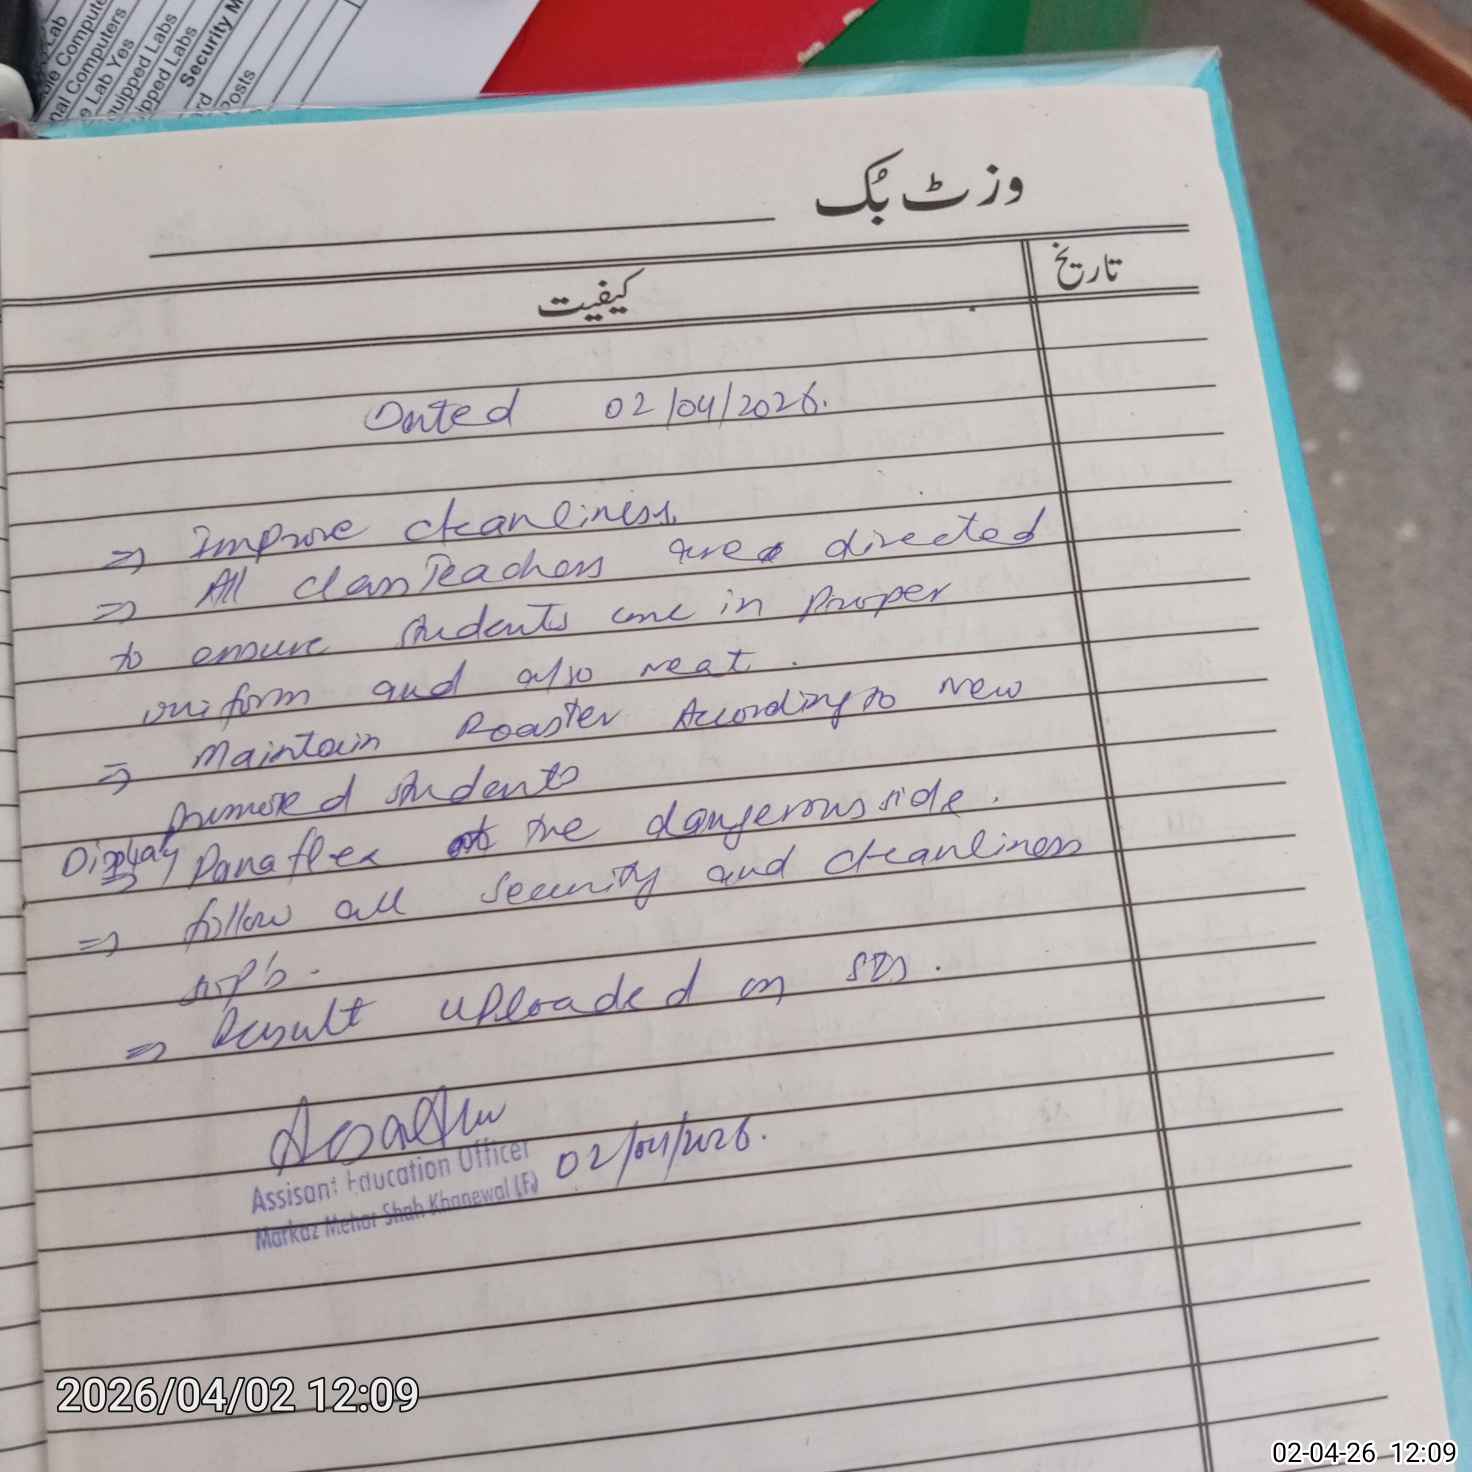 Lab
Computers
Lab Yes
Equipped Labs
Security M
Posts
وزٹ بُک
کیفیت
تاریخ
Dated 02/04/2026.
⇒ Improve cleanliness.
⇒ All class Teachers are directed
to ensure students come in proper
uniform and also neat.
⇒ Maintain Roaster According to new
promoted students
Display
⇒ Panaflex at the dangerous side.
⇒ follow all security and cleanliness
SOP's.
⇒ Result uploaded on SIS.
Assisant Education Officer
Markaz Mehar Shah Khanewal (F)
02/04/2026.
2026/04/02 12:09
02-04-26 12:09